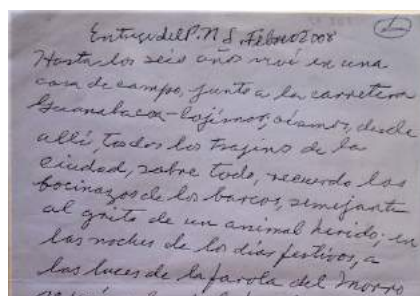 Entrega del P.N.L. Febrero 2008
Hasta los seis años viví en una
casa de campo, junto a la carretera
Guanabacoa-Cojímar, oíamos, desde
allí, todos los trajines de la
ciudad, sobre todo, recuerdo los
bocinazos de los barcos, semejante
al grito de un animal herido; en
las noches de los días festivos, a
las luces de la farola del Morro